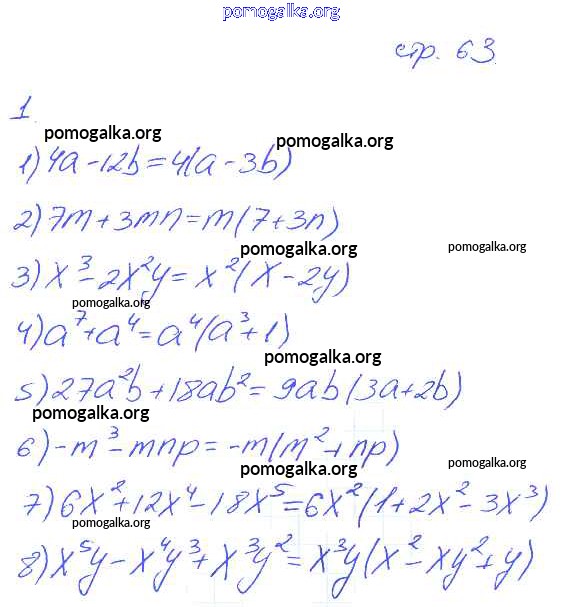 pomogalka.org
стр. 63
1
pomogalka.org
pomogalka.org
1) 4a - 12b = 4(a - 3b)
2) 7m + 3mn = m(7 + 3n)
pomogalka.org
pomogalka.org
3) x³ - 2x²y = x²(x - 2y)
pomogalka.org
4) a⁷ + a⁴ = a⁴(a³ + 1)
pomogalka.org
5) 27a²b + 18ab² = 9ab(3a + 2b)
pomogalka.org
6) -m³ - mnp = -m(m² + np)
pomogalka.org
pomogalka.org
7) 6x² + 12x⁴ - 18x⁵ = 6x²(1 + 2x² - 3x³)
pomogalka.org
pomogalka.org
8) x⁵y - x⁴y³ + x³y² = x³y(x² - xy² + y)